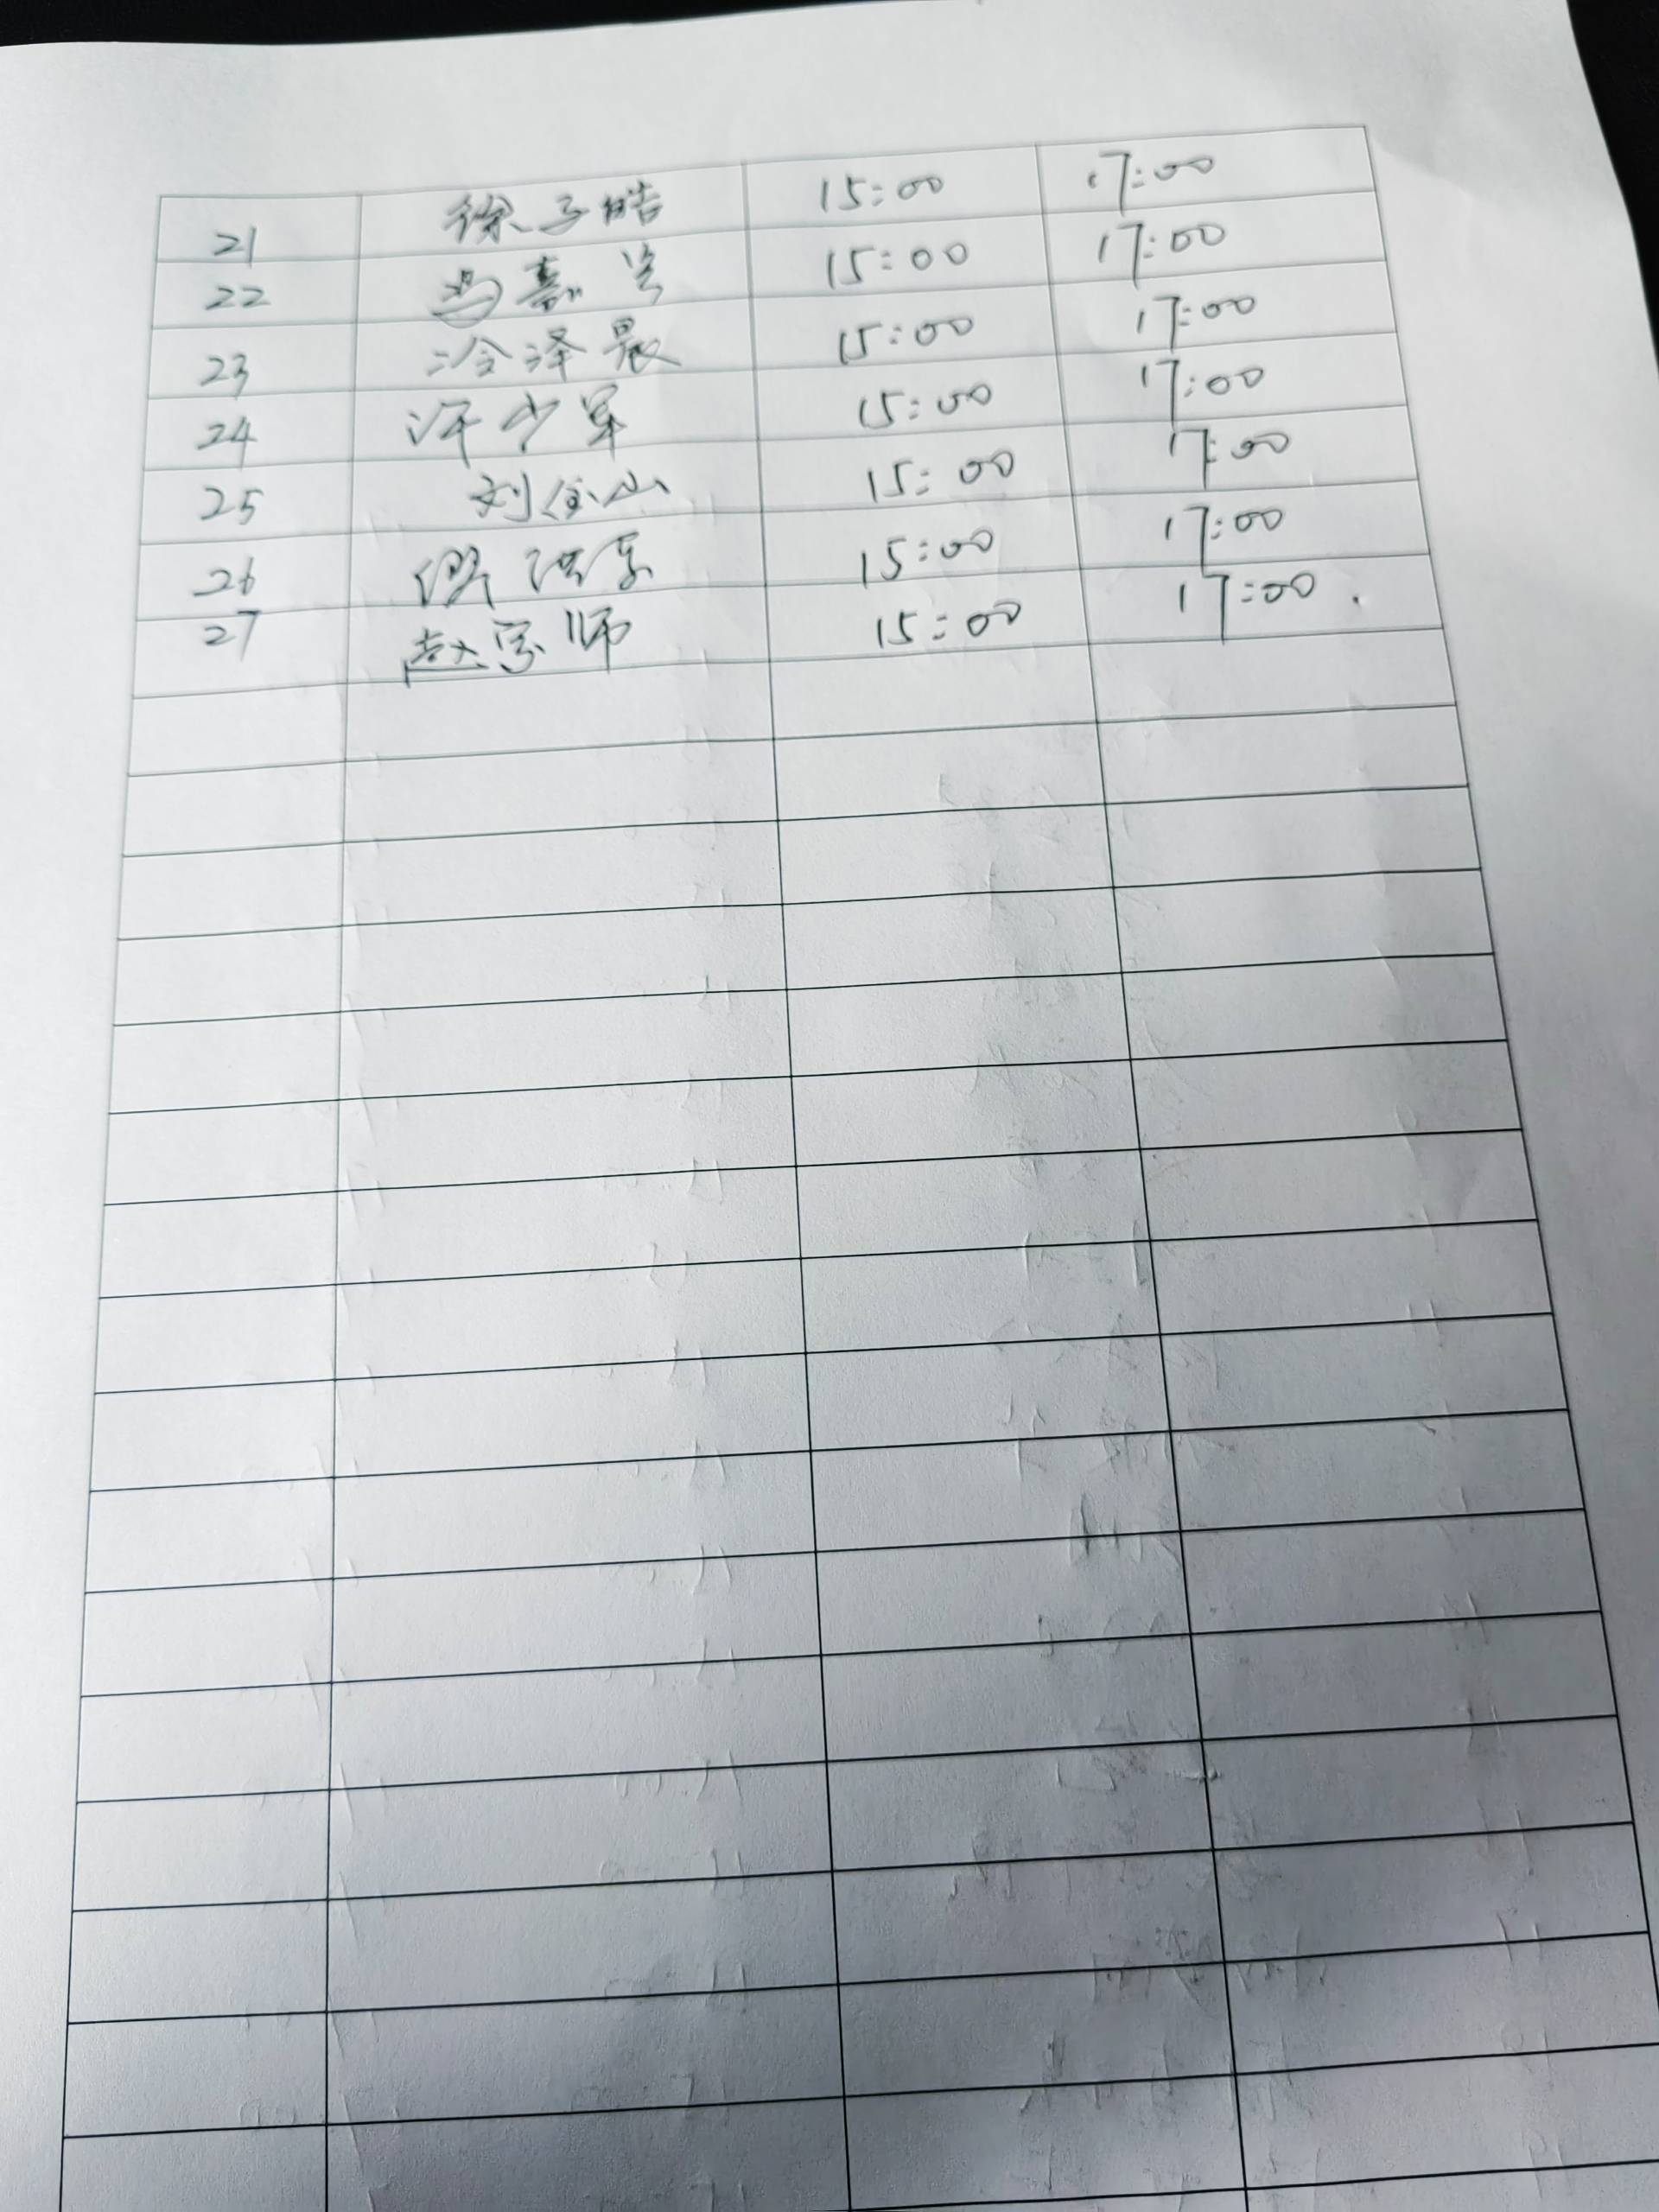 21 徐子皓 15:00 17:00
22 冯嘉 15:00 17:00
23 冷泽晨 15:00 17:00
24 许少军 15:00 17:00
25 刘金山 15:00 17:00
26 15:00 17:00
27 赵宗师 15:00 17:00